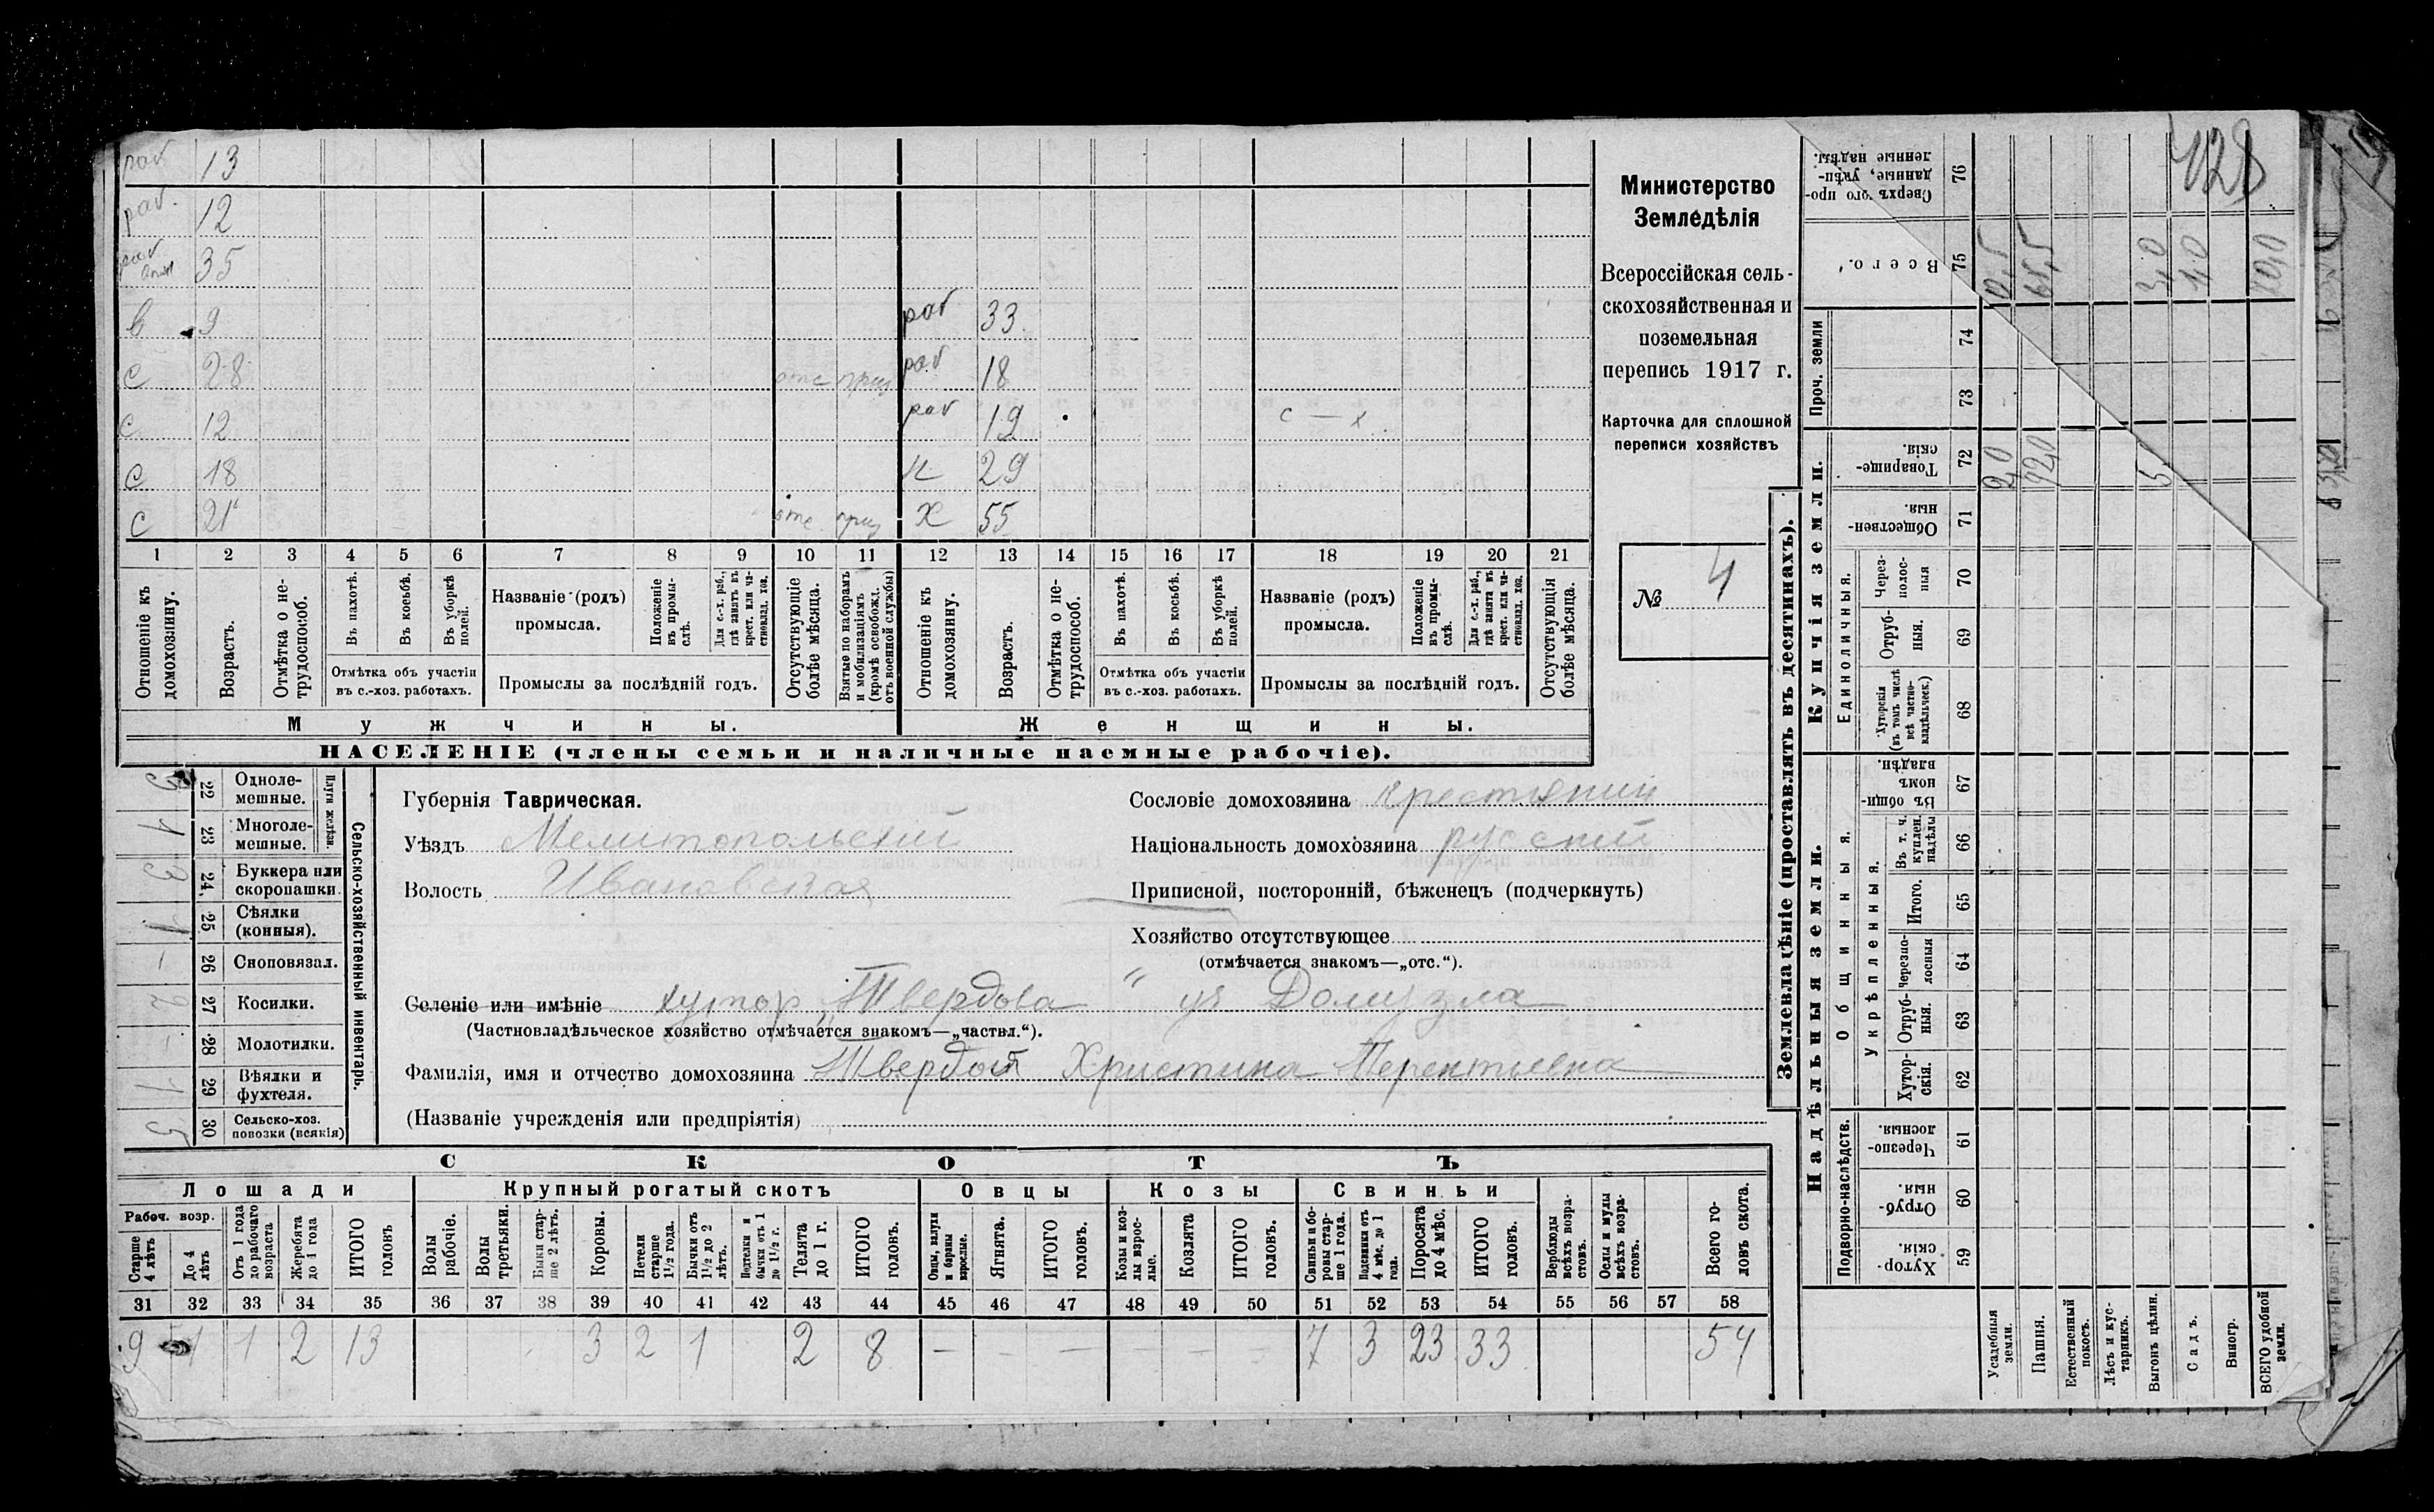 428
раб 13
раб. 12
раб 35
в 9 раб 33
с 28 отс приз раб 18
с 12 раб 19 с — х
с 18 29
с 21 отс приз х 55
1 2 3 4 5 6 7 8 9 10 11 12 13 14 15 16 17 18 19 20 21
Отношеніе къ домохозяину.
Возрастъ.
Отмѣтка о нетрудоспособ.
Въ пахотѣ.
Въ косьбѣ.
Въ уборкѣ полей.
Отмѣтка объ участіи
въ с.-хоз. работахъ.
Названіе (родъ)
промысла.
Положеніе въ промыслѣ.
Для с.-х. раб., гдѣ занятъ въ крест. или частновлад. хоз.
Промыслы за послѣдній годъ.
Отсутствующіе болѣе мѣсяца.
Взятые по наборамъ и мобилизаціямъ (кромѣ освобожд. отъ военной службы)
Отношеніе къ домохозяину.
Возрастъ.
Отмѣтка о нетрудоспособ.
Въ пахотѣ.
Въ косьбѣ.
Въ уборкѣ полей.
Отмѣтка объ участіи
въ с.-хоз. работахъ.
Названіе (родъ)
промысла.
Положеніе въ промыслѣ.
Для с.-х. раб., гдѣ занята въ крест. или частновлад. хоз.
Промыслы за послѣдній годъ.
Отсутствующія болѣе мѣсяца.
Мужчины. Женщины.
НАСЕЛЕНІЕ (члены семьи и наличные наемные рабочіе).
Министерство
Земледѣлія
Всероссійская сель-
скохозяйственная и
поземельная
перепись 1917 г.
Карточка для сплошной
переписи хозяйствъ
№ 4
Сельско-хозяйственный инвентарь.
Плуги желѣзн.
22 Одноле-
мешные.
1 23 Многоле-
мешные.
3 24. Буккера или
скоропашки.
1 25 Сѣялки
(конныя).
– 26 Сноповязал.
2 27 Косилки.
– 28 Молотилки.
1 29 Вѣялки и
фухтеля.
5 30 Сельско-хоз.
повозки (всякія)
Губернія Таврическая.
Уѣздъ Мелитопольский
Волость Ивановская
Сословіе домохозяина крестьянин
Національность домохозяина русский
Приписной, посторонній, бѣженецъ (подчеркнуть)
Хозяйство отсутствующее
(отмѣчается знакомъ—„отс.“).
Селеніе или имѣніе хутор „Твердова“ уч Домузла
(Частновладѣльческое хозяйство отмѣчается знакомъ—„частвл.“).
Фамилія, имя и отчество домохозяина Христина Терентьевна
(Названіе учрежденія или предпріятія)
СКОТЪ
Лошади Крупный рогатый скотъ Овцы Козы Свиньи
Рабоч. возр.
Старше 4 лѣтъ
До 4 лѣтъ
Отъ 1 года до рабочаго возраста
Жеребята до 1 года
ИТОГО головъ
Волы рабочіе.
Волы третьяки.
Быки старше 2 лѣтъ.
Коровы.
Нетели старше 1½ года.
Бычки отъ 1½ до 2 лѣтъ.
Подтелки и бычки отъ 1 до 1½ г.
Телята до 1 г.
ИТОГО головъ.
Овцы, валухи и бараны взрослые.
Ягнята.
ИТОГО головъ.
Козы и козлы взрослые.
Козлята
ИТОГО головъ.
Свиньи и боровы старше 1 года.
Подсвинки отъ 4 мѣс. до 1 года.
Поросята до 4 мѣс.
ИТОГО головъ.
Верблюды всѣхъ возрастовъ.
Ослы и мулы всѣхъ возрастовъ.
Всего головъ скота.
31 32 33 34 35 36 37 38 39 40 41 42 43 44 45 46 47 48 49 50 51 52 53 54 55 56 57 58
9 1 1 2 13 3 2 1 2 8 – – – – – – 7 3 23 33 54
Землевладѣніе (проставлять въ десятинахъ).
Надѣльныя земли. Купчія земли. Проч. земли
Подворно-наслѣдств.
Общинныя.
Укрѣпленныя.
Единоличныя.
Хуторскія. 59
Отрубныя. 60
Черезполосныя. 61
Хуторскія. 62
Отрубныя. 63
Черезполосныя 64
Итого. 65
Въ т. ч. куплен. надѣлы 66
Въ общинномъ владѣн. 67
Хуторскія (въ томъ числѣ всѣ частновладѣльческ.) 68
Отрубныя. 69
Черезполосныя 70
Общественныя. 71
Товарищескія. 72
73
74
Всего. 75
Сверхъ того проданные, укрѣпленные надѣлы. 76
Усадебныя земли.
Пашня.
Естественный покосъ.
Лѣсъ и кустарникъ.
Выгонъ цѣлин.
Садъ.
Виногр.
ВСЕГО удобной земли.
2,0 92,0 5
3,0 1,0